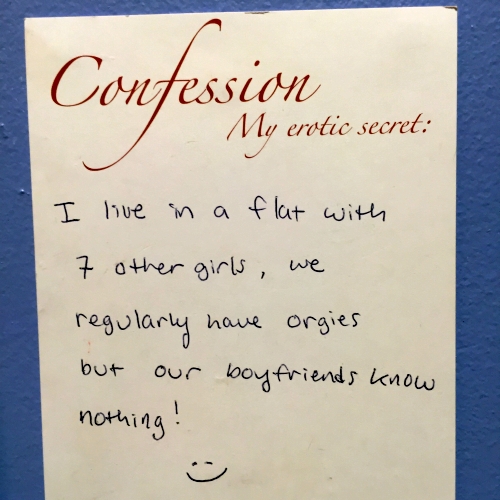 Confession
My erotic secret:
I live in a flat with
7 other girls, we
regularly have orgies
but our boyfriends know
nothing!